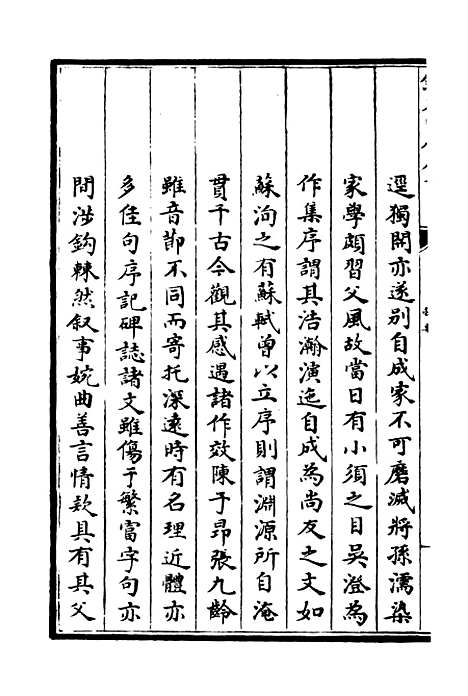 逕獨開亦遂别自成家不可磨滅將孫濡染
家學頗習父風故當日有小須之目吳澄為
作集序謂其浩瀚演迤自成為尚友之文如
蘇洵之有蘇軾曽以立序則謂淵源所自淹
貫千古今觀其感遇諸作效陳子昂張九齡
雖音節不同而寄托深逺時有名理近體亦
多佳句序記碑誌諸文雖傷于繁富字句亦
間涉鈎棘然叙事婉曲善言情欵具有其父